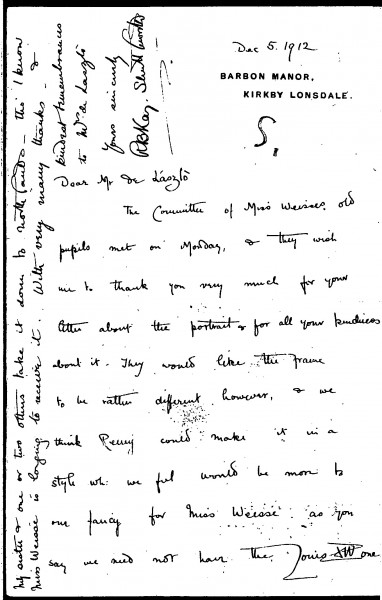 Dec 5. 1912
BARBON MANOR,
KIRKBY LONSDALE.
S.
Dear Mr de László
The Committee of Miss Weisse's old
pupils met on Monday, & they wish
me to thank you very much for your
letter about the portrait & for all your kindness
about it. They would like the frame
to be rather different however, & we
think Remy could make it in a
style wh: we feel would be more to
our fancy for Miss Weisse as you
say we need not have the Louis XVI one
My sister & one or two others take it down to North – this I know
Miss Weisse is longing to receive it. With very many thanks &
kindest remembrances
to Mrs de László
Yours sincerely